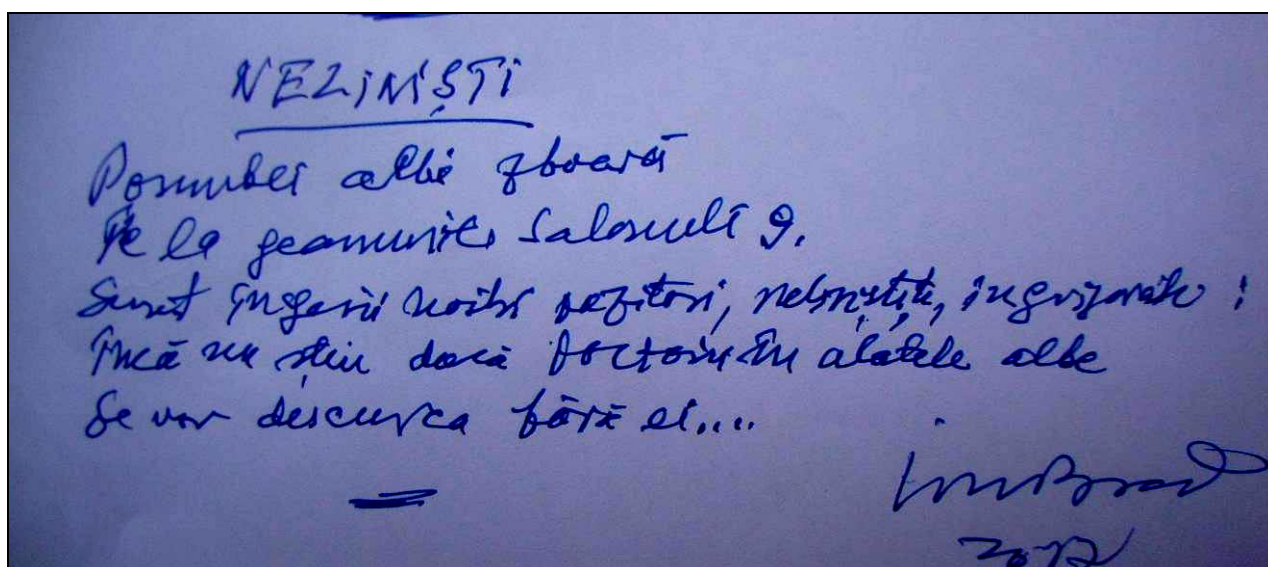 NELINIȘTI
Porumbei albi zboară
Pe la geamurile Salonului 9.
Sunt îngerii noștri păzitori, neliniștiți, îngrijorați:
Încă nu știu dacă Doctorii în halatele albe
Se vor descurca fără ei....
Ion Brad
2012